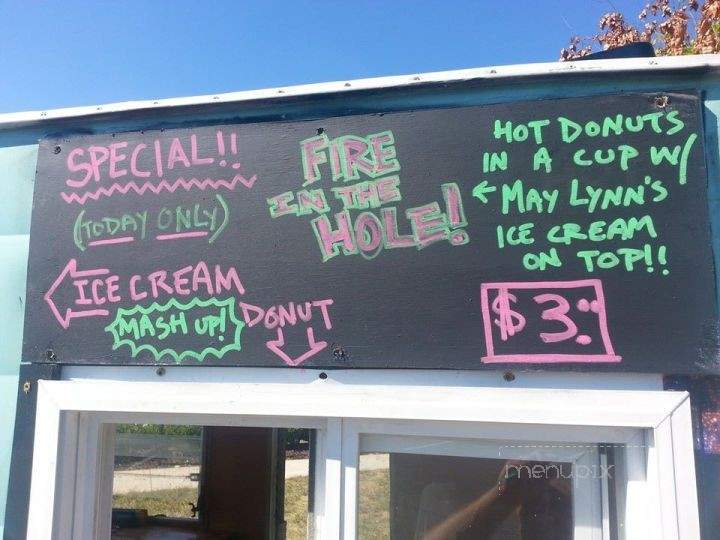 SPECIAL!!
(TODAY ONLY)
ICE CREAM
MASH UP!
DONUT
FIRE
IN THE
HOLE!
HOT DONUTS
IN A CUP W/
MAY LYNN'S
ICE CREAM
ON TOP!!
$3
menupix